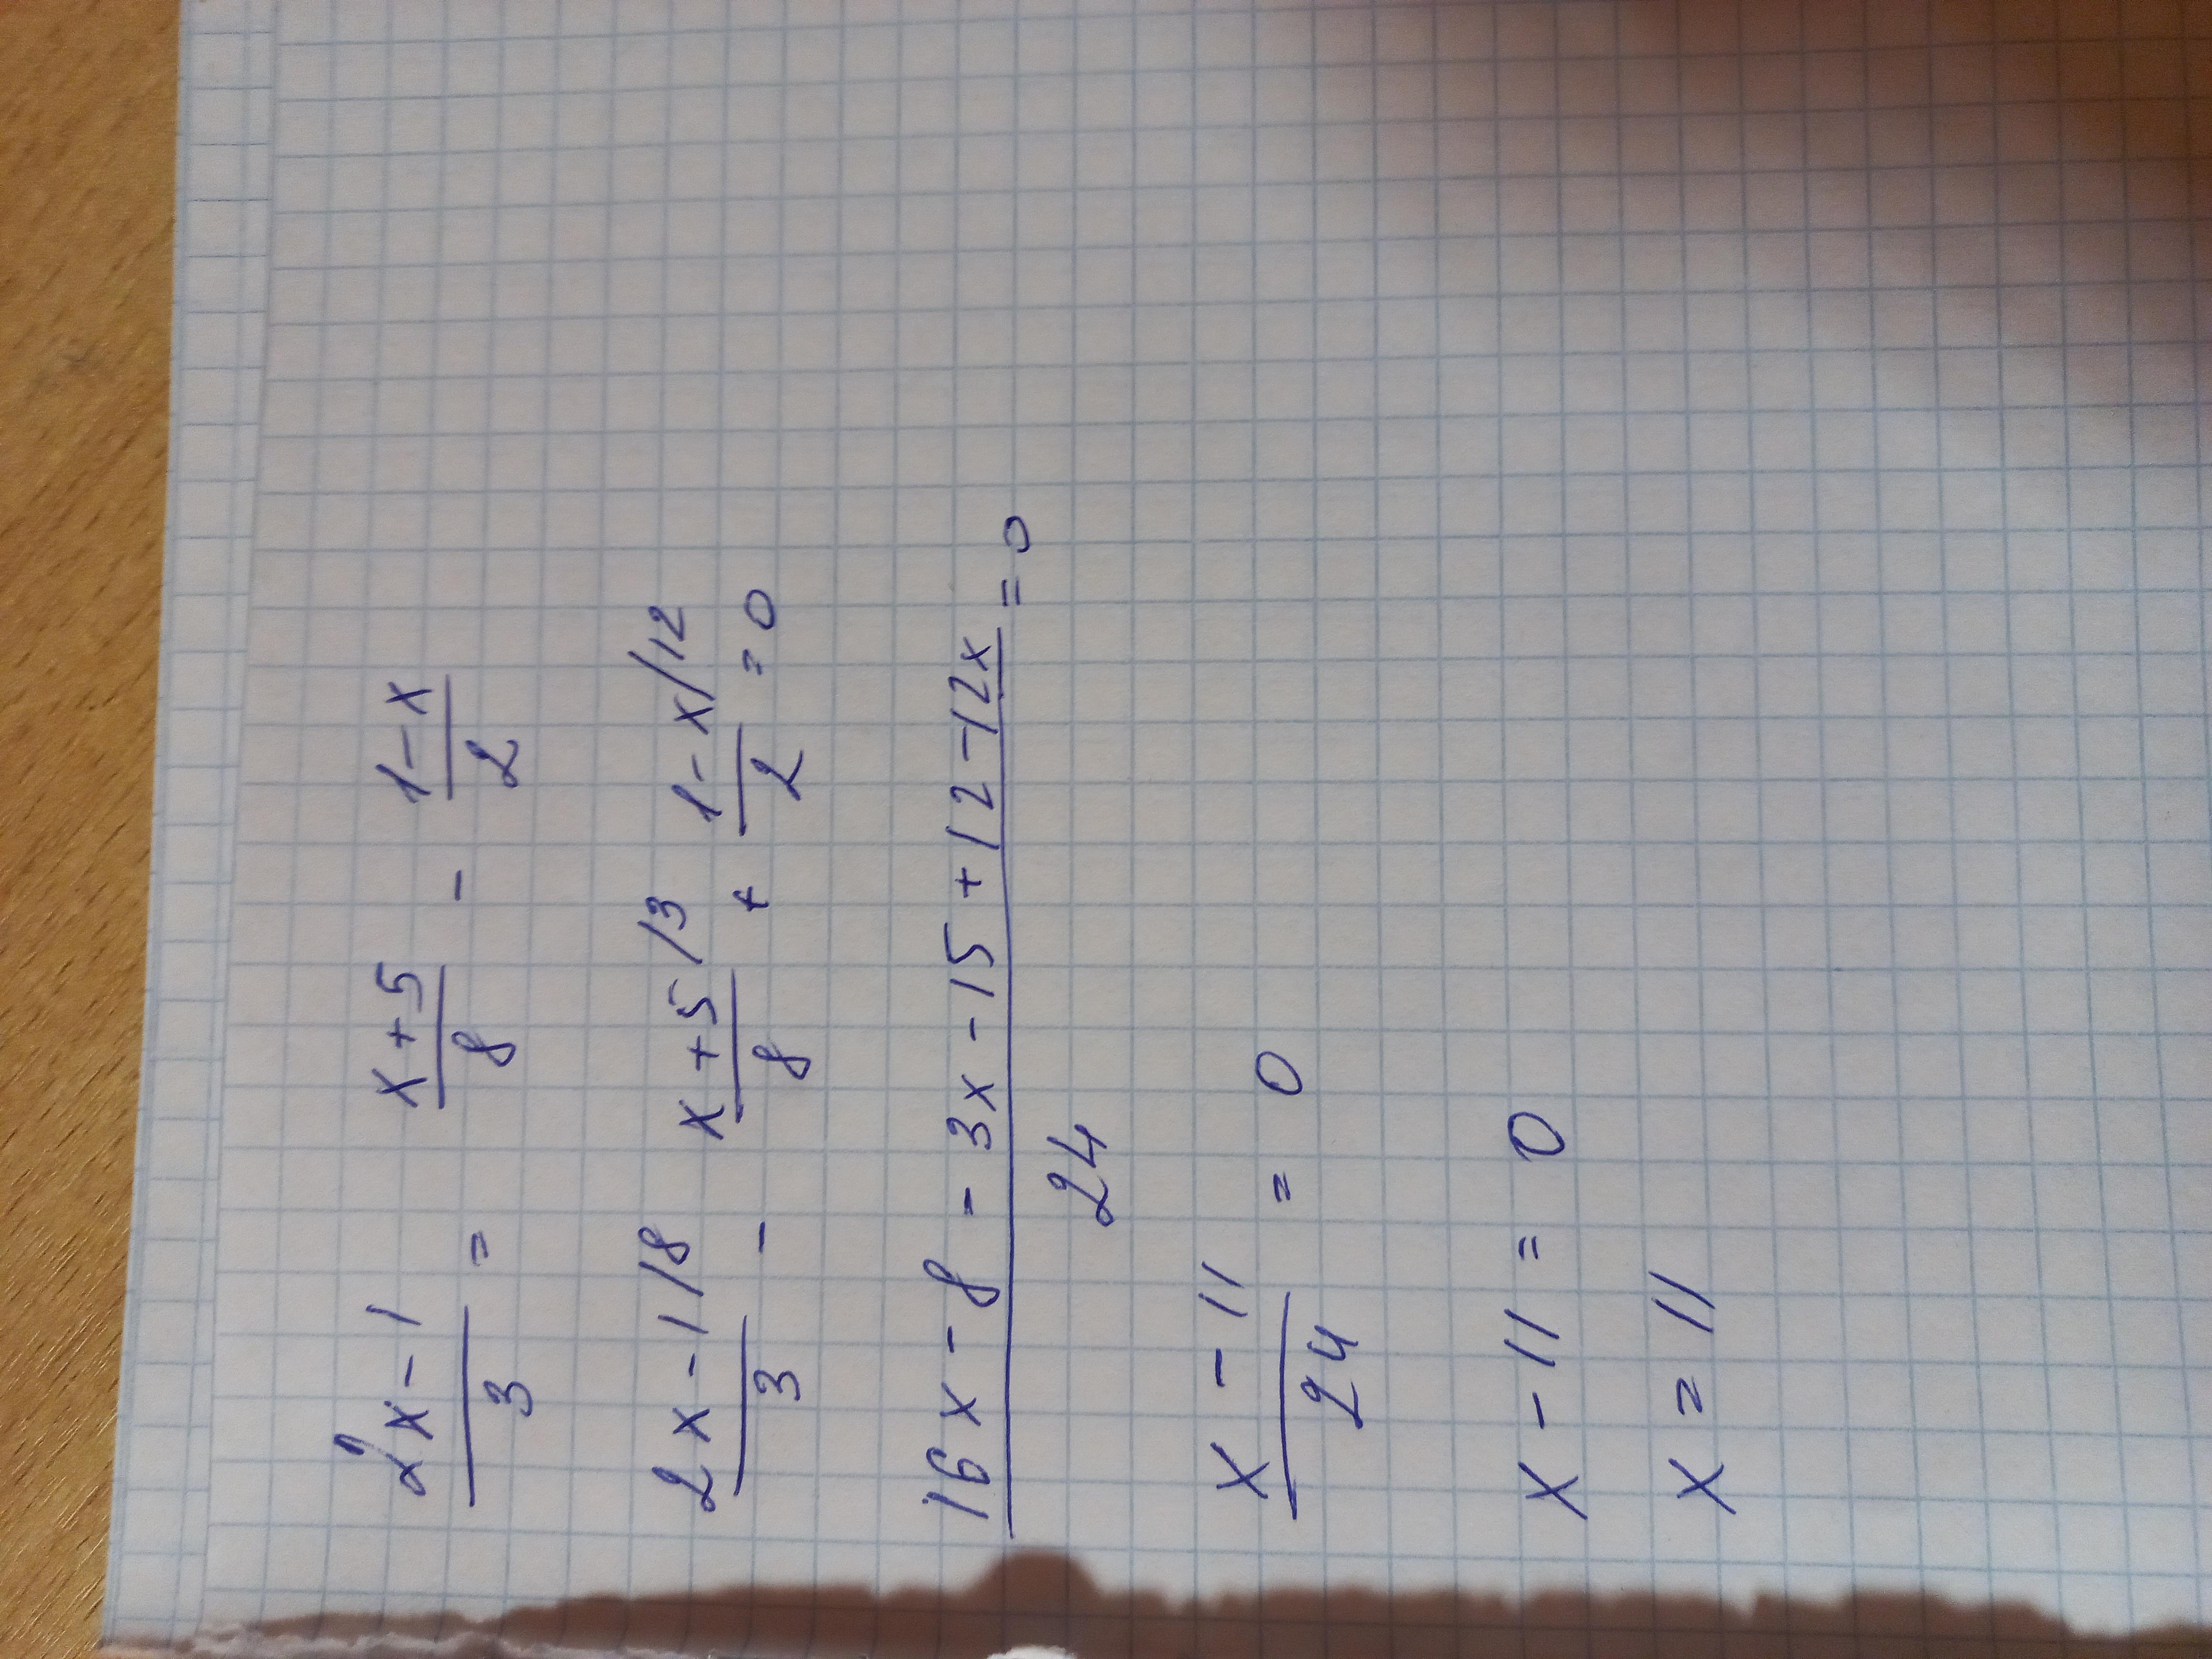 (2x-1)/3 = (x+5)/8 - (1-x)/2
(2x-1/8)/3 - (x+5/3)/8 + (1-x/12)/2 = 0
(16x-8-3x-15+12-12x)/24 = 0
(x-11)/24 = 0
x-11=0
x=11